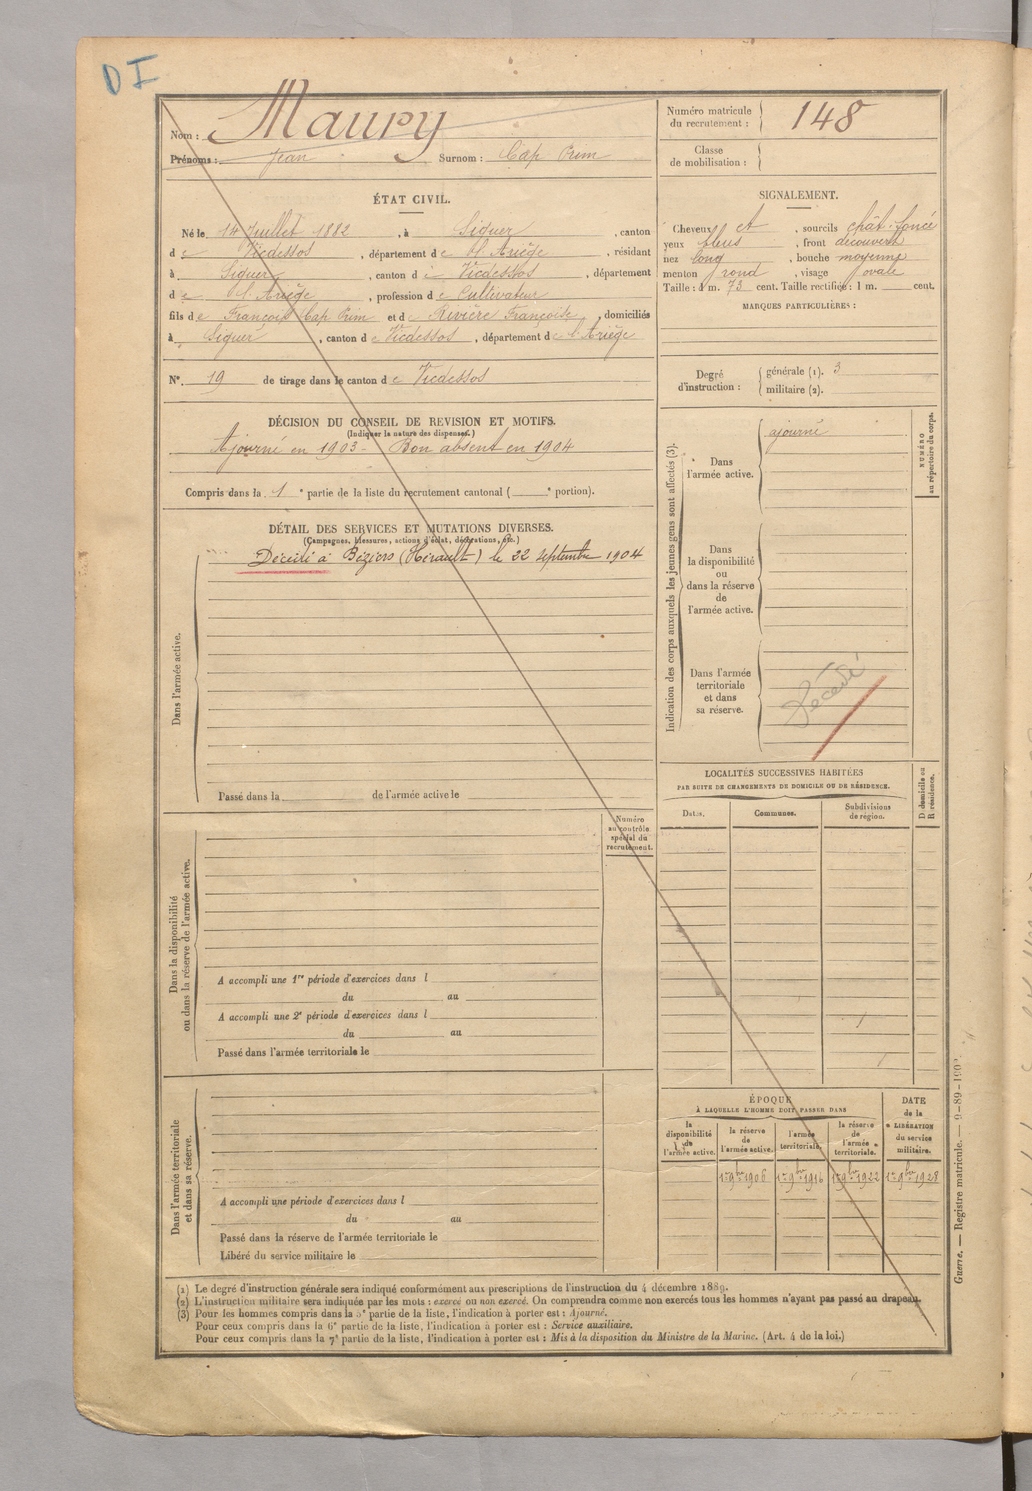 D I
Nom : Maury
Prénoms : Jean Surnom : Cap Prim
Numéro matricule
du recrutement : 148
Classe
de mobilisation :
ÉTAT CIVIL.
Né le 14 Juillet 1882, à Siguer, canton
de Vicdessos, département de l'Ariège, résidant
à Siguer, canton de Vicdessos, département
de l'Ariège, profession de Cultivateur
fils de François Cap Prim et de Rivière Françoise, domiciliés
à Siguer, canton de Vicdessos, département de l'Ariège
N° 19 de tirage dans le canton de Vicdessos
DÉCISION DU CONSEIL DE REVISION ET MOTIFS.
(Indiquer la nature des dispenses.)
Ajourné en 1903 - Bon absent en 1904
Compris dans la 1e partie de la liste du recrutement cantonal ( e portion).
DÉTAIL DES SERVICES ET MUTATIONS DIVERSES.
(Campagnes, blessures, actions d'éclat, décorations, etc.)
Décédé à Béziers (Hérault) le 22 septembre 1904
Dans l'armée active.
Passé dans la de l'armée active le
Numéro
au contrôle
spécial du
recrutement.
Dans la disponibilité
ou dans la réserve de l'armée active.
A accompli une 1re période d'exercices dans l
du au
A accompli une 2e période d'exercices dans l
du au
Passé dans l'armée territoriale le
Dans l'armée territoriale
et dans sa réserve.
A accompli une période d'exercices dans l
du au
Passé dans la réserve de l'armée territoriale le
Libéré du service militaire le
SIGNALEMENT.
Cheveux et, sourcils chât. foncé
yeux bleus, front découvert
nez long, bouche moyenne
menton rond, visage ovale
Taille : 1 m. 73 cent. Taille rectifiée : 1 m. cent.
MARQUES PARTICULIÈRES :
Degré
d'instruction :
générale (1). 3
militaire (2).
Indication des corps auxquels les jeunes gens sont affectés (3).
NUMÉRO
au répertoire du corps.
Dans
l'armée active.
ajourné
Dans
la disponibilité
ou
dans la réserve
de
l'armée active.
Dans l'armée
territoriale
et dans
sa réserve.
Décédé
LOCALITÉS SUCCESSIVES HABITÉES
PAR SUITE DE CHANGEMENTS DE DOMICILE OU DE RÉSIDENCE.
Dates. Communes. Subdivisions
de région.
D domicile ou
R résidence.
ÉPOQUE
À LAQUELLE L'HOMME DOIT PASSER DANS
la
disponibilité
de
l'armée active.
la réserve
de
l'armée active.
l'armée
territoriale.
la réserve
de
l'armée
territoriale.
DATE
de la
LIBÉRATION
du service
militaire.
1er 9bre 1906 1er 9bre 1916 1er 9bre 1922 1er 9bre 1928
(1) Le degré d'instruction générale sera indiqué conformément aux prescriptions de l'instruction du 4 décembre 1889.
(2) L'instruction militaire sera indiquée par les mots : exercé ou non exercé. On comprendra comme non exercés tous les hommes n'ayant pas passé au drapeau.
(3) Pour les hommes compris dans la 5e partie de la liste, l'indication à porter est : Ajourné.
Pour ceux compris dans la 6e partie de la liste, l'indication à porter est : Service auxiliaire.
Pour ceux compris dans la 7e partie de la liste, l'indication à porter est : Mis à la disposition du Ministre de la Marine. (Art. 4 de la loi.)
Guerre. — Registre matricule. — 9-89-1902.